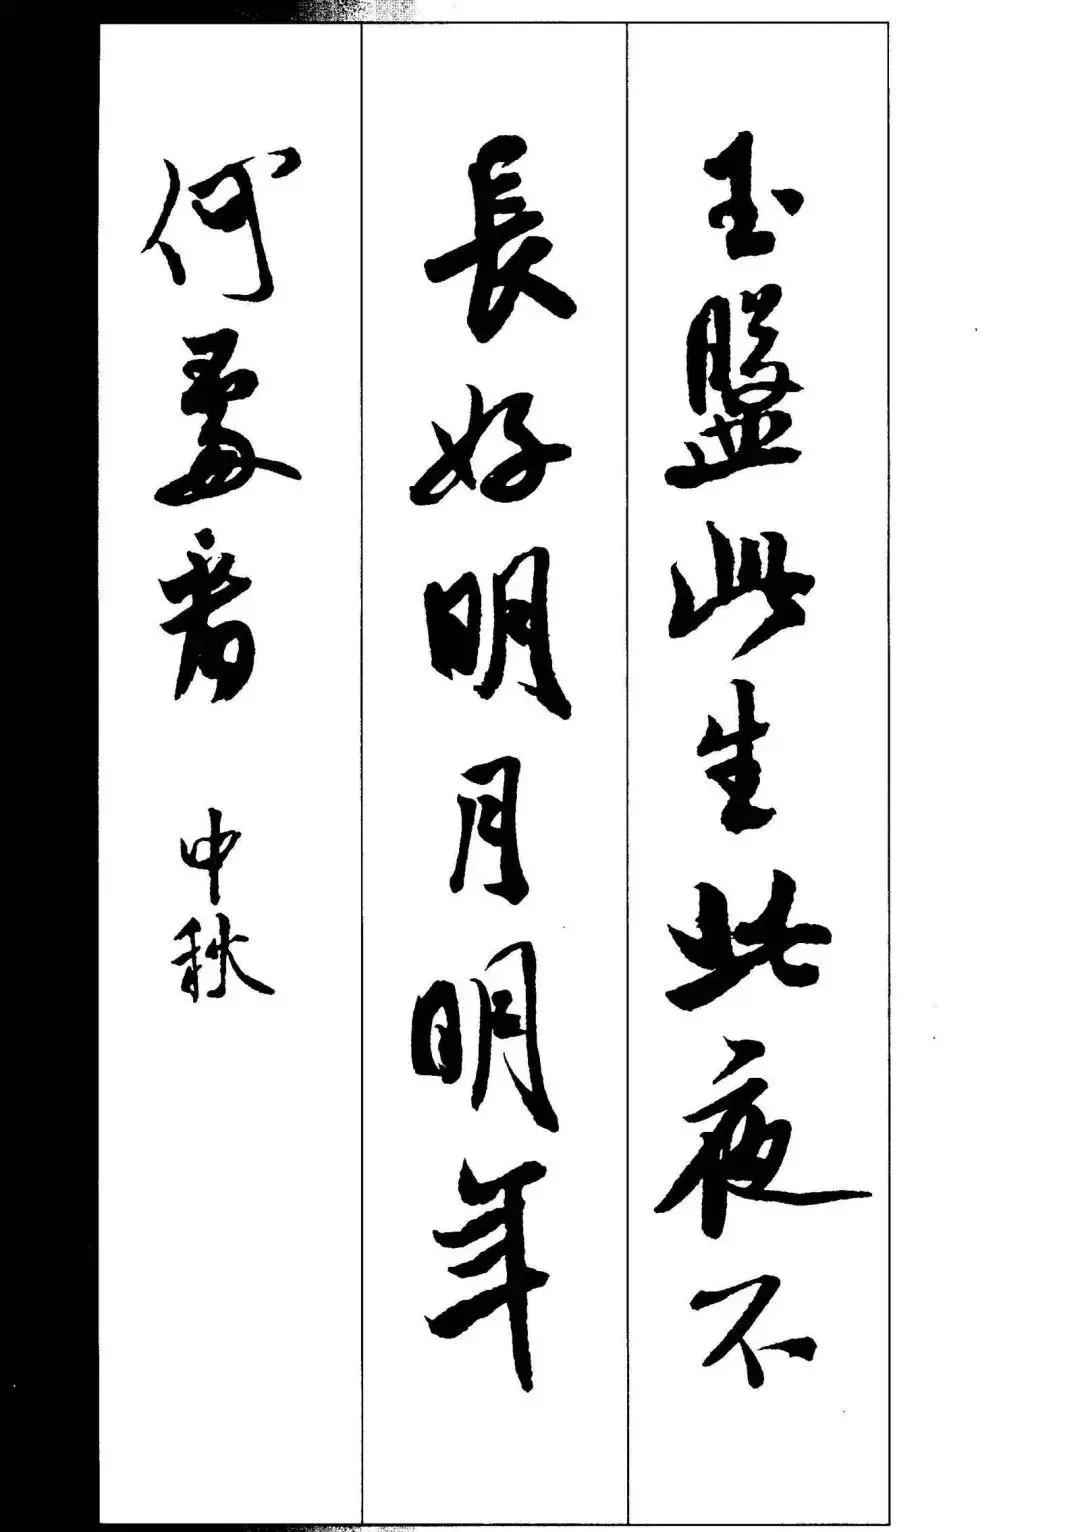 玉盤此生此夜不
長好明月明年
何處看 中秋